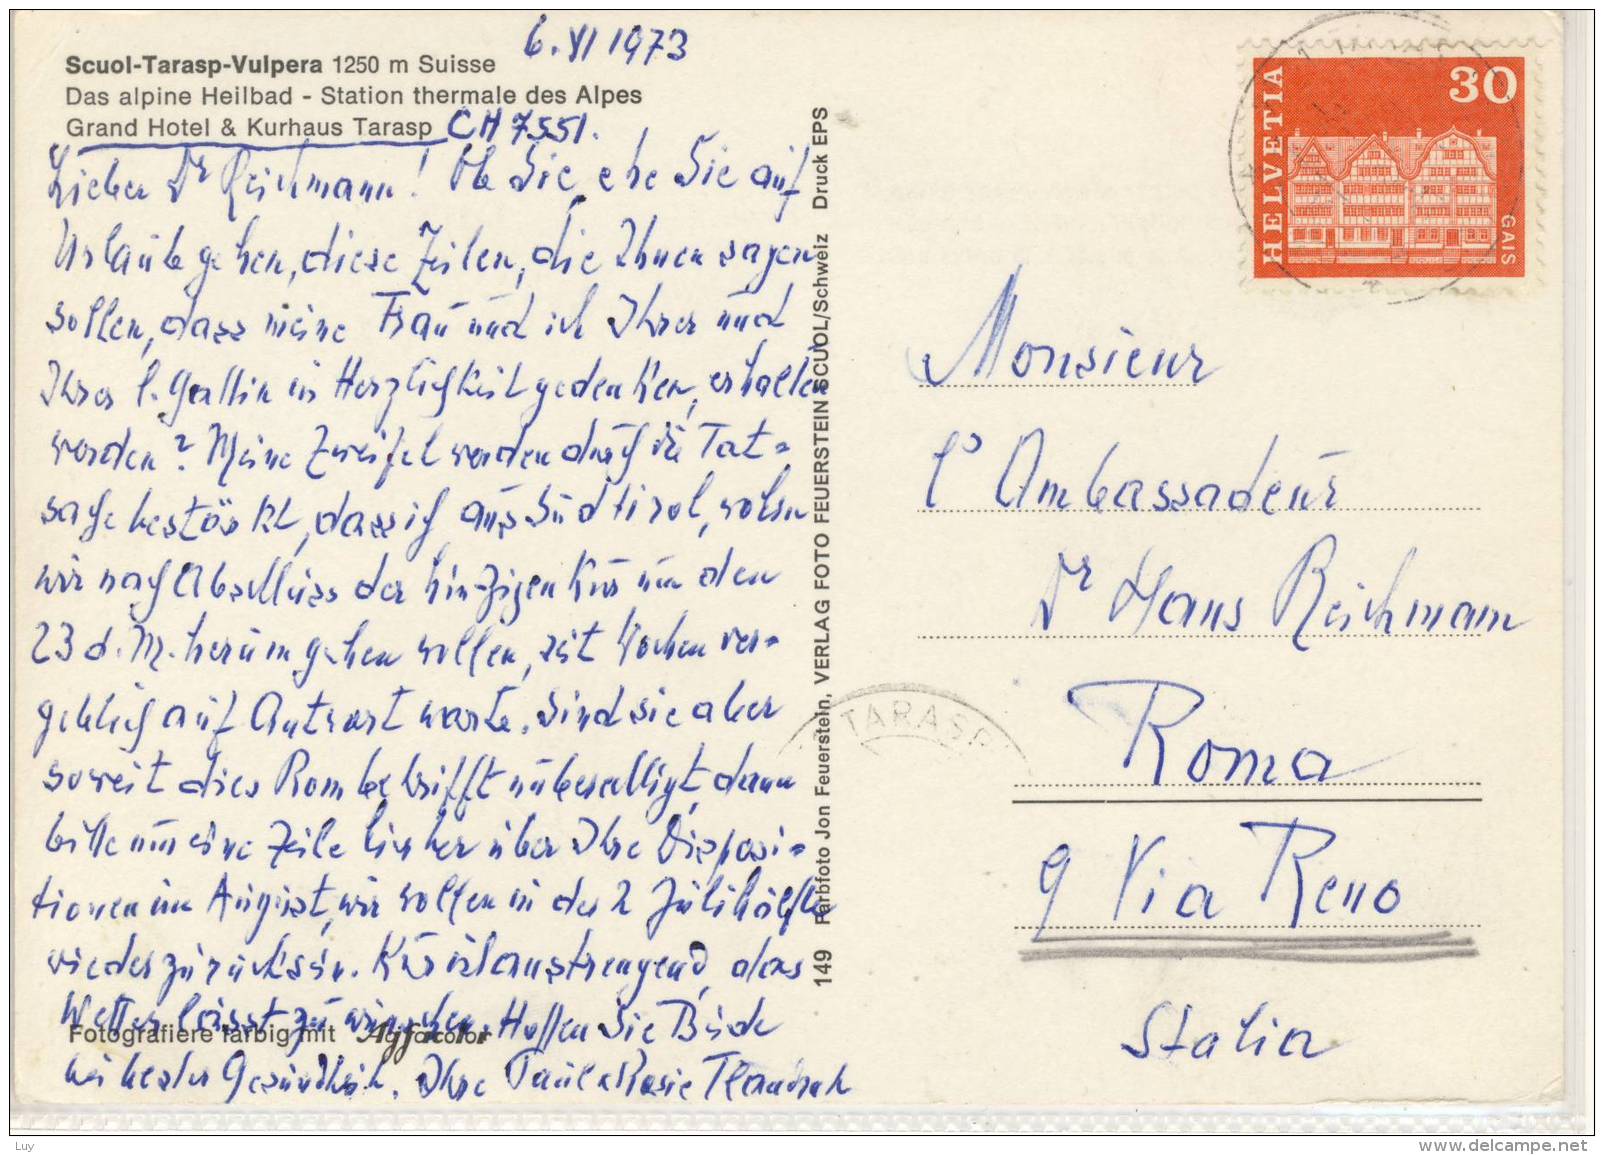 6. VI 1973
Scuol-Tarasp-Vulpera 1250 m Suisse
Das alpine Heilbad - Station thermale des Alpes
Grand Hotel & Kurhaus Tarasp CH 7551.
Lieber Dr Reichmann! Ob Sie, ehe Sie auf
Urlaub gehen, diese Zeilen, die Ihnen sagen
sollen, dass meine Frau und ich Ihrer und
Ihrer l. Gattin in Herzlichkeit gedenken, erhalten
werden? Meine Zweifel werden durch die Tat-
sache bestärkt, dass ich aus Südtirol, wohin
wir nach Abschluss der hiesigen Kur um den
23 d. M. herum gehen wollen, seit Wochen ver-
geblich auf Antwort warte. Sind Sie aber
soweit dies Rom betrifft unbeschädigt, dann
bitte um eine Zeile hierher über Ihre Disposi-
tionen im August, wir wollen in der 2 Julihälfte
wieder zurück sein. Kur ist anstrengend, das
Wetter lässt zu wünschen. Hoffen Sie Beide
bei bester Gesundheit. Ihre Paul & Rosie
Fotografiere farbig mit Agfacolor
149 Farbfoto Jon Feuerstein, VERLAG FOTO FEUERSTEIN SCUOL/Schweiz Druck EPS
TARASP
HELVETIA
30
GAIS
Monsieur
l' Ambassadeur
Dr Hans Reichmann
Roma
9 Via Reno
Italia
Luy
www.delcampe.net